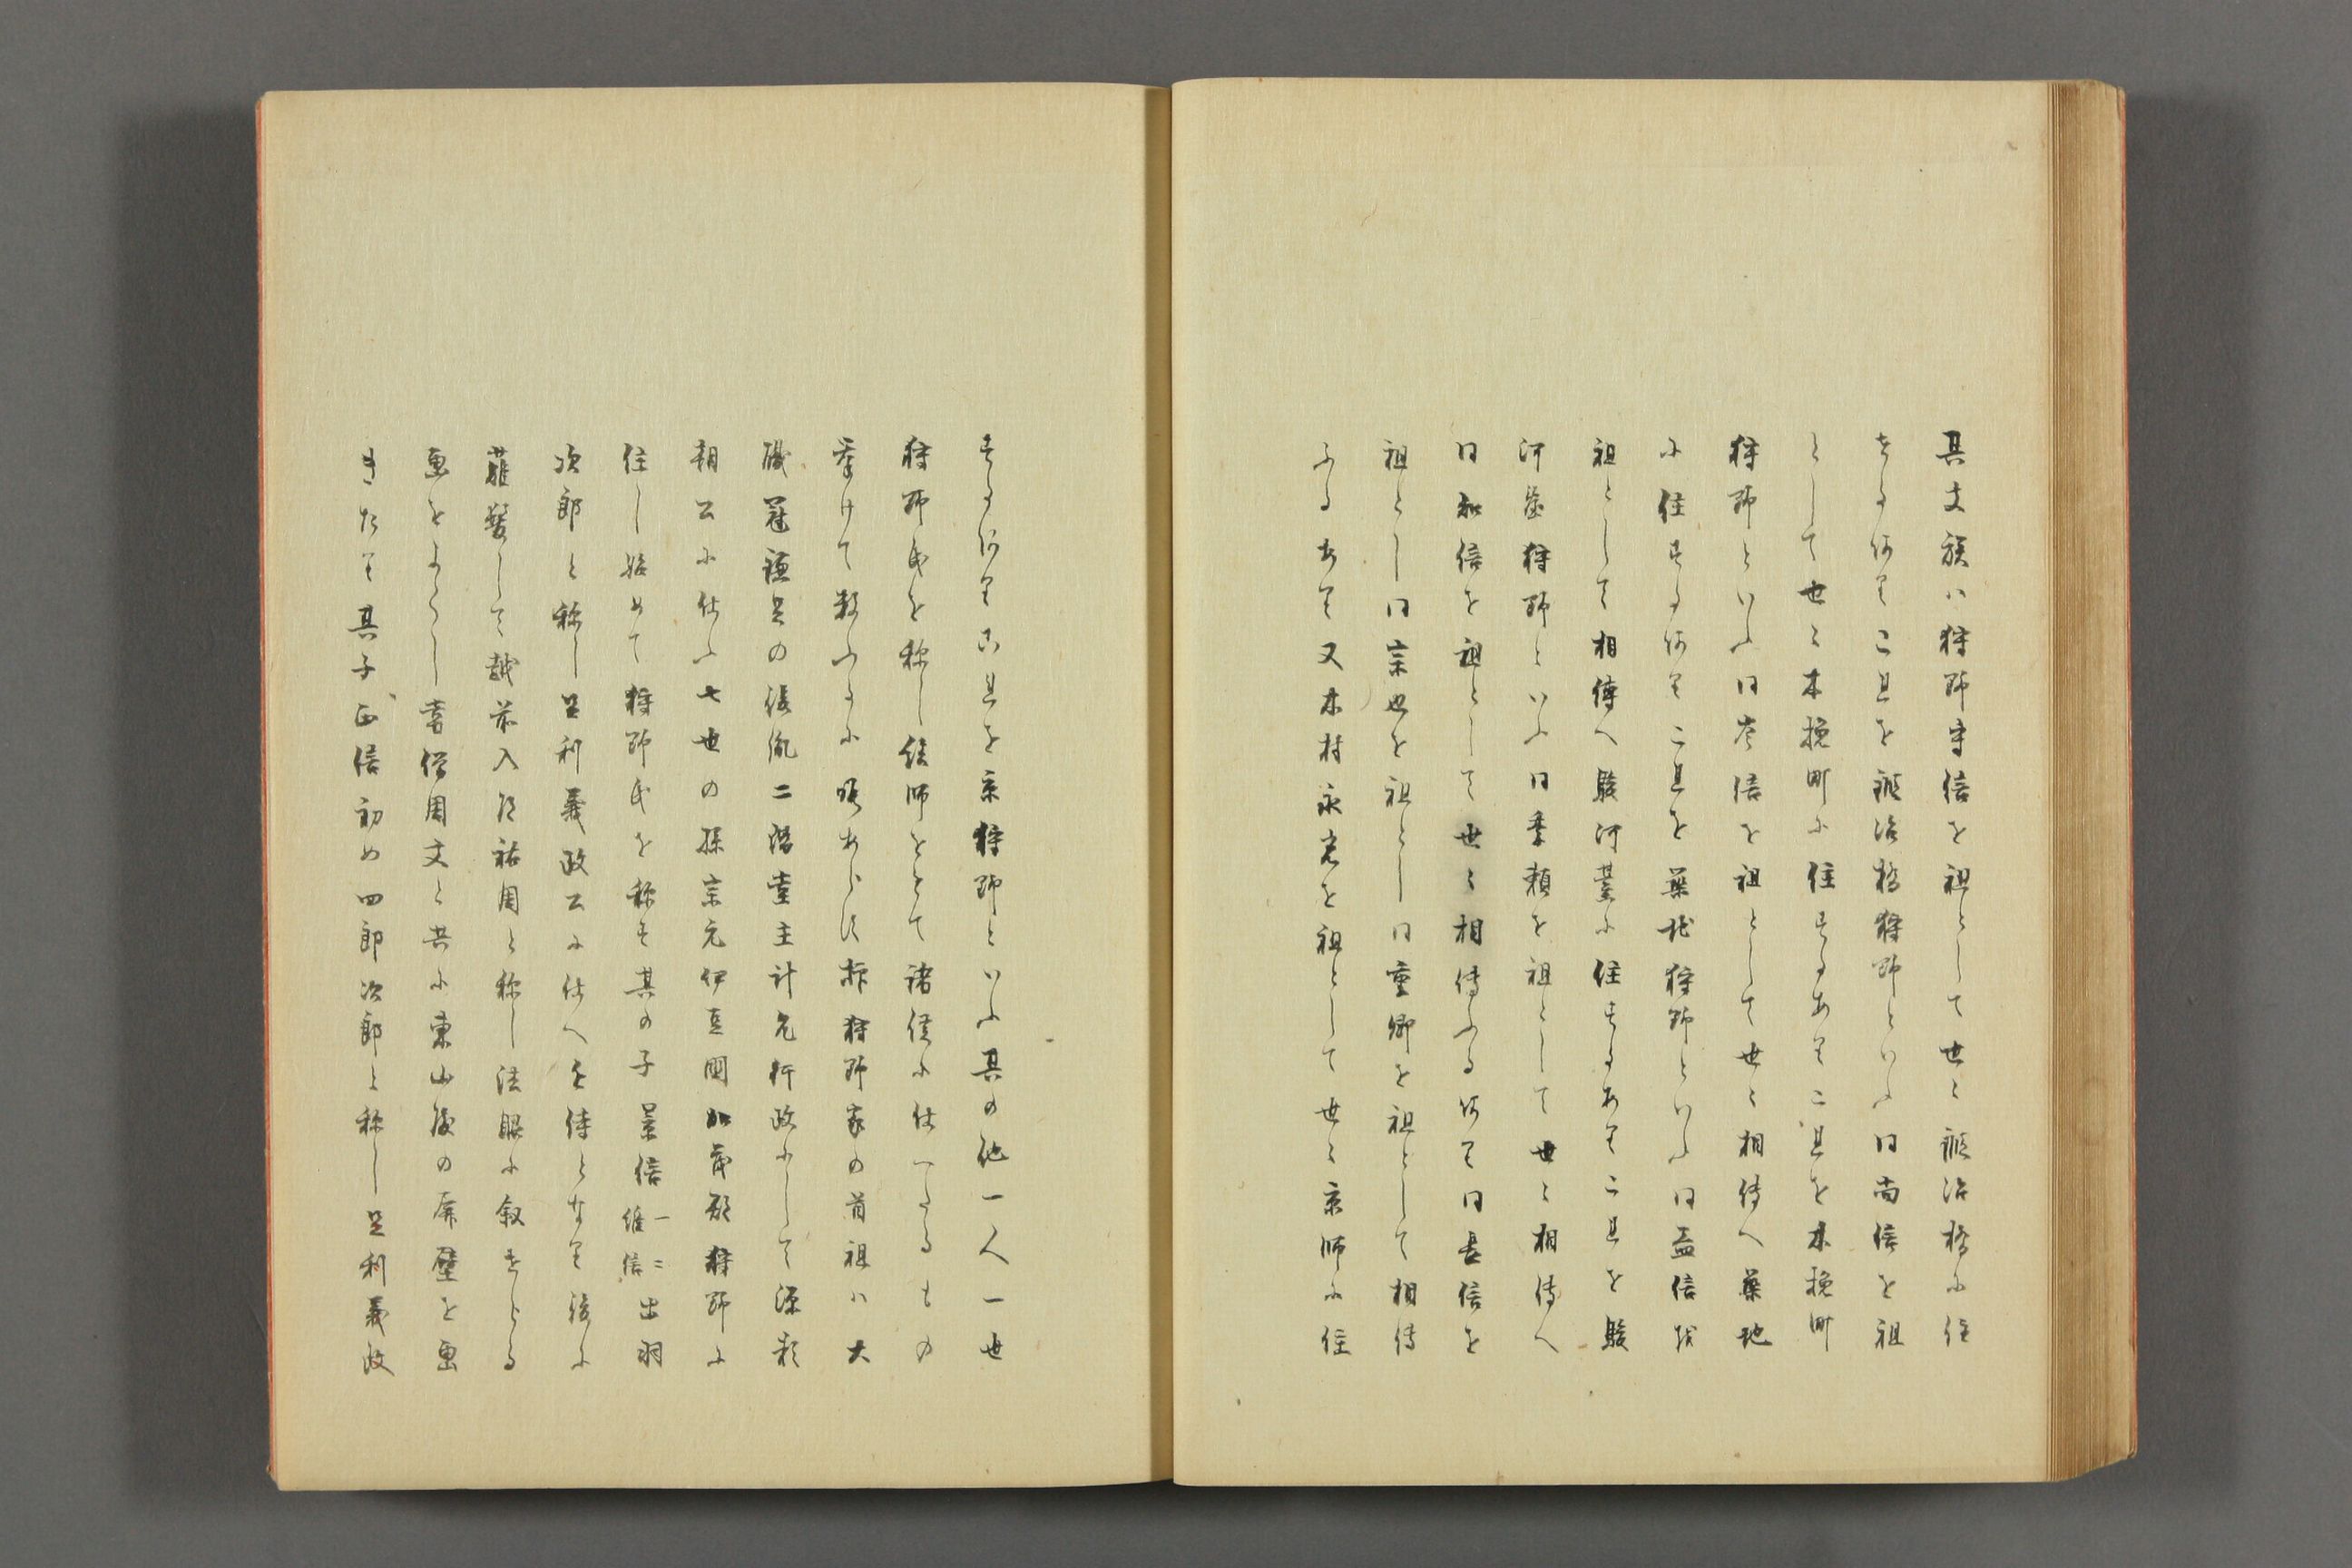 其支族ハ狩野守信を祖として世々鍛冶橋に住
するあり之を鍛冶橋狩野といふ曰尚信を祖
として世々木挽町に住するあり之を木挽町
狩野といふ曰岑信を祖として世々相傳へ築地
に住するあり之を築地狩野といふ曰益信を
祖として相傳へ駿河臺に住するあり之を駿
河臺狩野といふ曰秉頼を祖として世々相傳へ
曰知信を祖として世々相傳ふるあり曰長信を
祖とし曰宗也を祖とし曰重郷を祖として相傳
ふるあり又木村永光を祖として世々京師に住
するあり之を京狩野といふ其の他一人一世
狩野氏を称し絵師をとて諸侯に仕へたるもの
挙けて数ふるに暇あらす抑狩野家の首祖ハ大
職冠鎌足の後胤二階堂主計允行政にして源頼
朝公に仕ふ七世の孫宗元伊豆國加茂郡狩野に
住し始めて狩野氏を称す其の子景信一ニ維信出羽
次郎と称し足利義政公に仕へ近侍となり後に
薙髪して越前入道祐周と称し法眼に叙せらる
画をよくし畫僧周文と共に東山殿の屏壁を画
きたり其子正信初め四郎次郎と称し足利義政